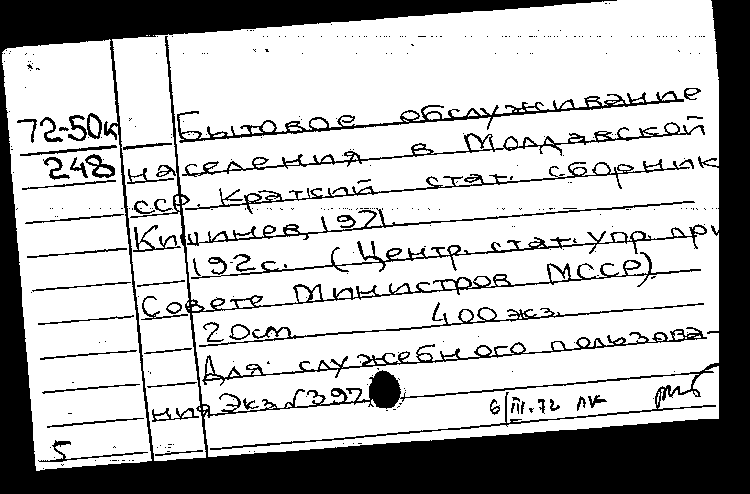 72-50к Бытовое обслуживание
248 населения в Молдавской
ССР. Краткий стат. сборник
Кишинев, 1971.
192с. (Центр. стат. упр. при
Совете Министров МССР).
20cm. 400 экз.
Для служебного пользова-
ния Экз. № 397
6/III.72
5